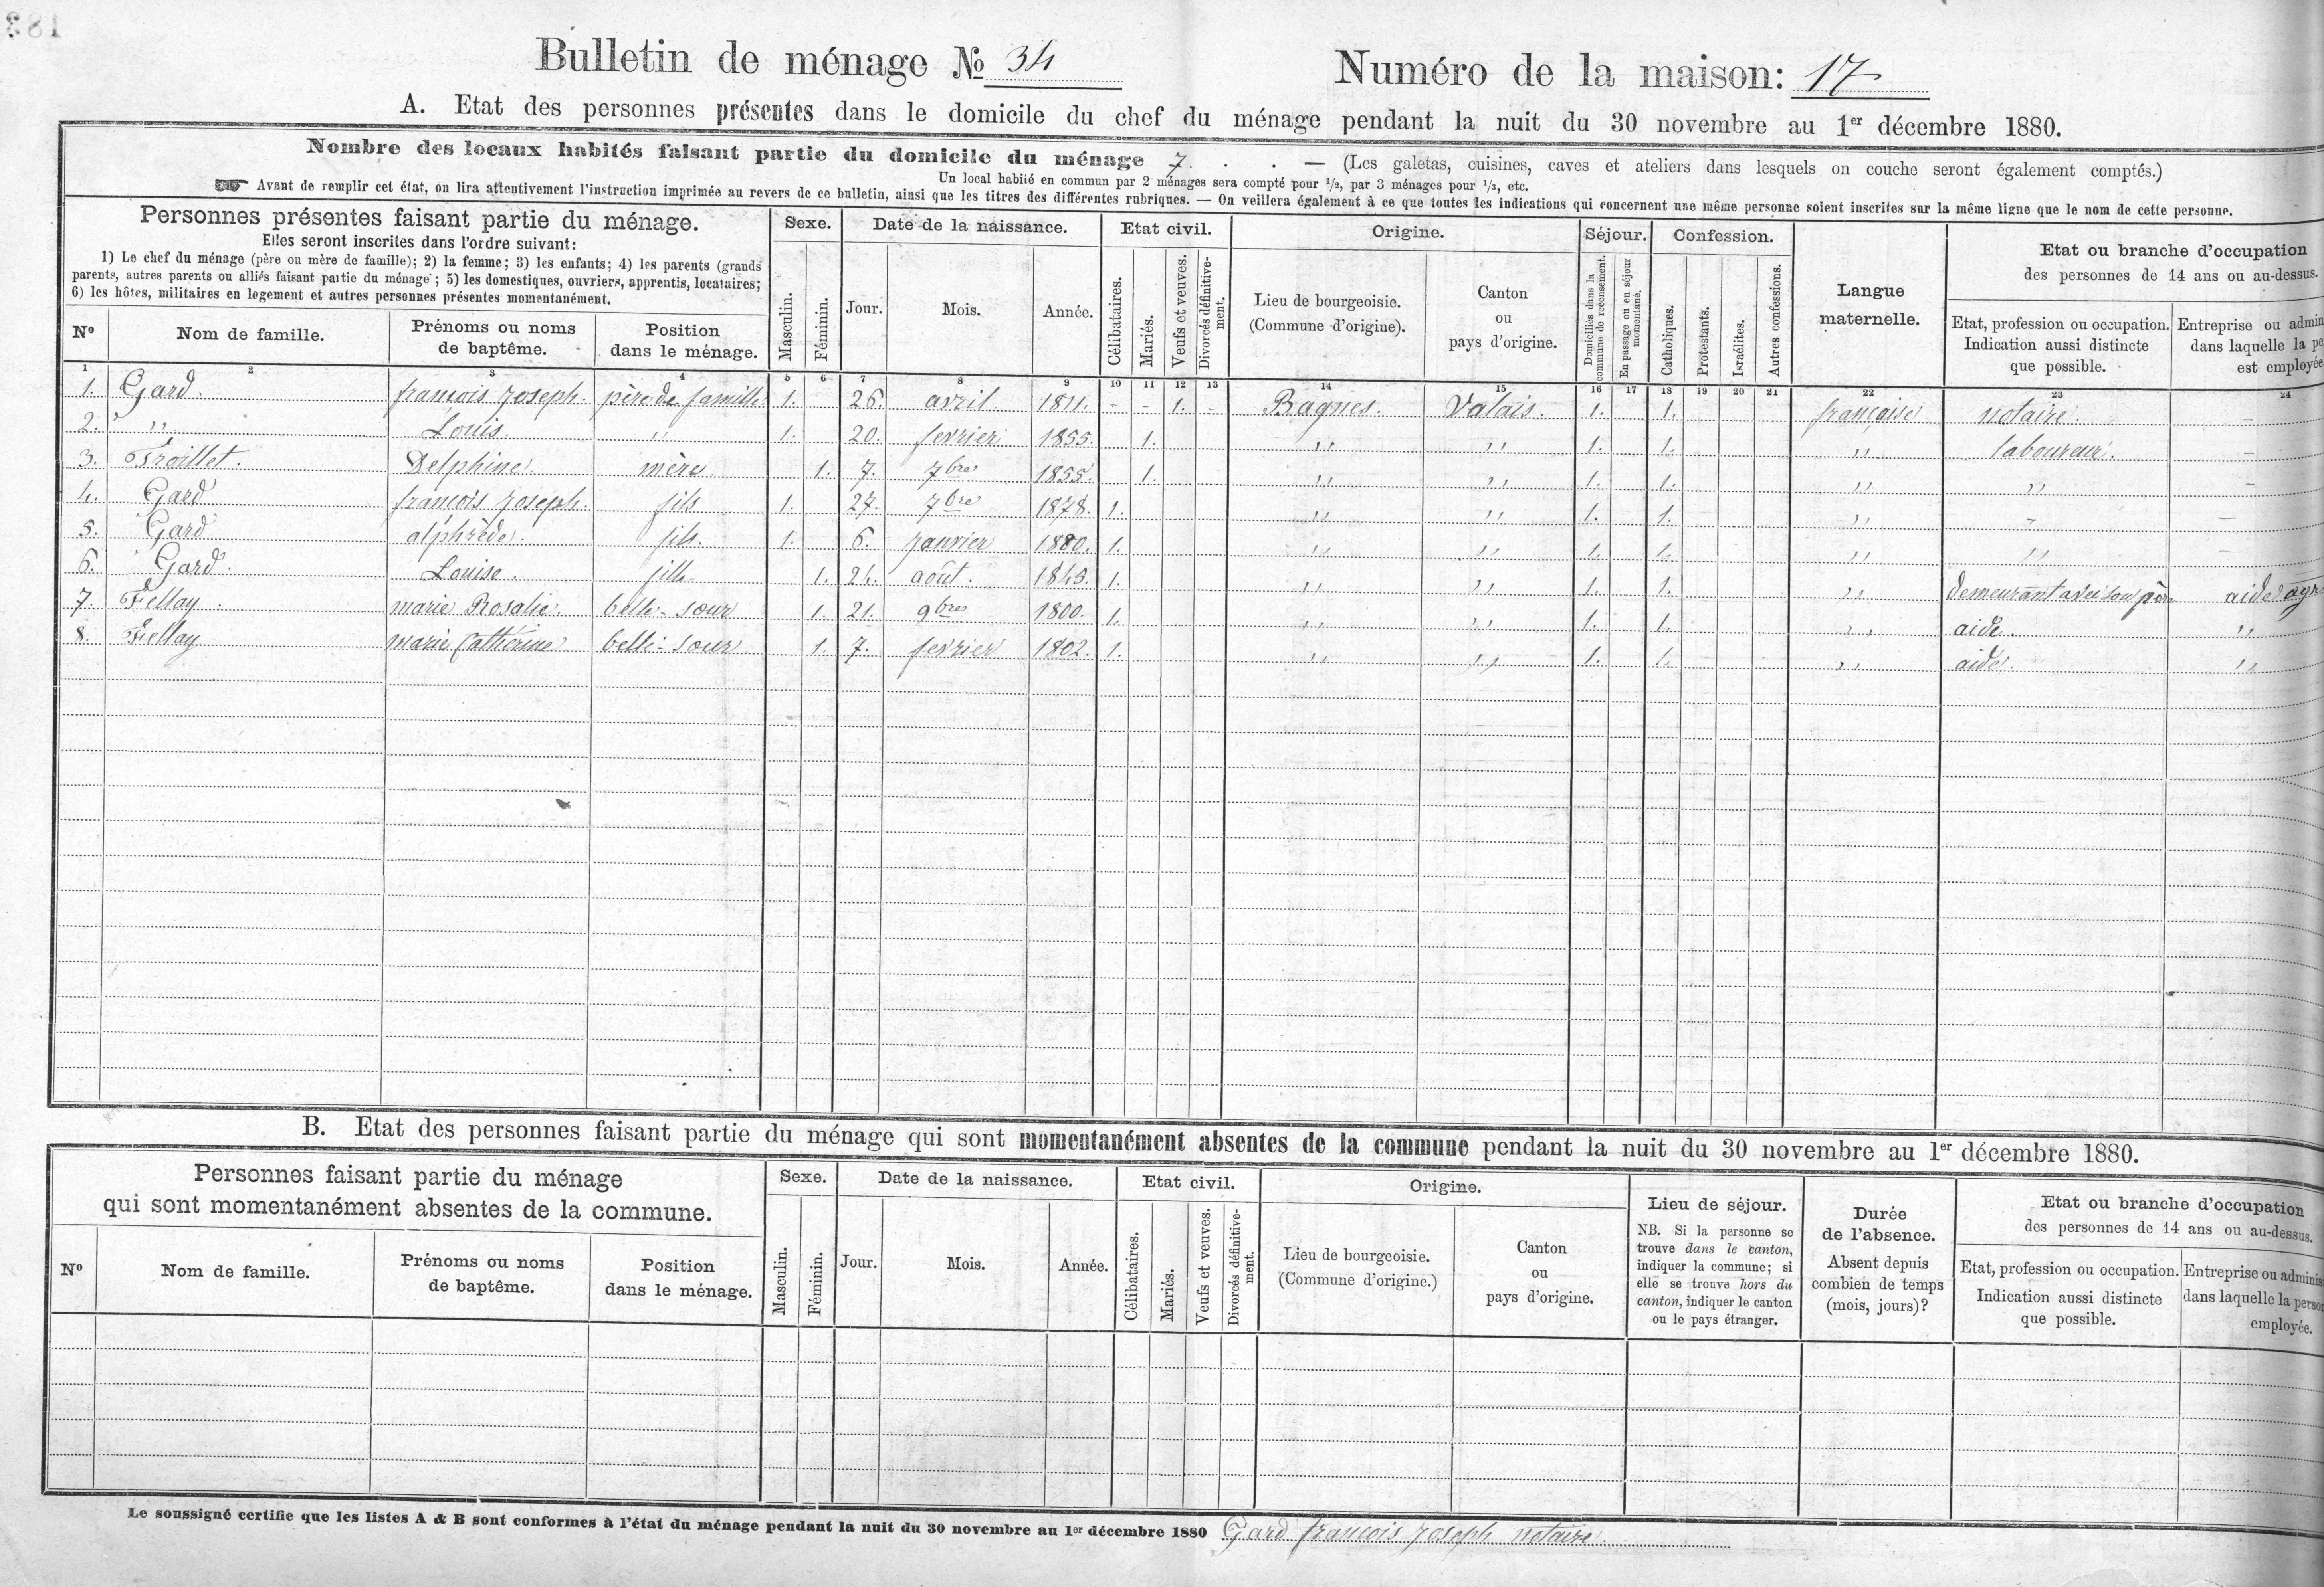 183
Bulletin de ménage № 34 Numéro de la maison: 17
A. Etat des personnes présentes dans le domicile du chef du ménage pendant la nuit du 30 novembre au 1er décembre 1880.
Nombre des locaux habités faisant partie du domicile du ménage 7 . . — (Les galetas, cuisines, caves et ateliers dans lesquels on couche seront également comptés.)
Un local habité en commun par 2 ménages sera compté pour 1/2, par 3 ménages pour 1/3, etc.
☞ Avant de remplir cet état, on lira attentivement l'instruction imprimée au revers de ce bulletin, ainsi que les titres des différentes rubriques. — On veillera également à ce que toutes les indications qui concernent une même personne soient inscrites sur la même ligne que le nom de cette personne.
Personnes présentes faisant partie du ménage.
Elles seront inscrites dans l'ordre suivant:
1) Le chef du ménage (père ou mère de famille); 2) la femme; 3) les enfants; 4) les parents (grands
parents, autres parents ou alliés faisant partie du ménage; 5) les domestiques, ouvriers, apprentis, locataires;
6) les hôtes, militaires en logement et autres personnes présentes momentanément.
No
Nom de famille.
Prénoms ou noms
de baptême.
Position
dans le ménage.
Sexe.
Masculin.
Féminin.
Date de la naissance.
Jour.
Mois.
Année.
Etat civil.
Célibataires.
Mariés.
Veufs et veuves.
Divorcés définitive-
ment.
Origine.
Lieu de bourgeoisie.
(Commune d'origine).
Canton
ou
pays d'origine.
Séjour.
Domiciliés dans la
commune de recensement.
En passage ou en séjour
momentané.
Confession.
Catholiques.
Protestants.
Israélites.
Autres confessions.
Langue
maternelle.
Etat ou branche d'occupation
des personnes de 14 ans ou au-dessus.
Etat, profession ou occupation.
Indication aussi distincte
que possible.
Entreprise ou admin
dans laquelle la pe
est employée
1 2 3 4 5 6 7 8 9 10 11 12 13 14 15 16 17 18 19 20 21 22 23 24
1. Gard. françois Joseph. père de famille 1. 26. avril. 1811. - - 1. - Bagnes. Valais. 1. 1. française notaire. —
2. ,, Louis. ,, 1. 20. fevrier 1855. 1. ,, ,, 1. 1. ,, laboureur. —
3. Troillet. Delphine. mère 1. 7. 7bre 1855. 1. ,, ,, 1. 1. ,, ,, —
4. Gard françois Joseph. fils 1. 27. 7bre 1878. 1. ,, ,, 1. 1. ,, - —
5. Gard alphrède. fils. 1. 6. janvier 1880. 1. ,, ,, 1. 1. ,, ,, —
6. Gard. Louise. fille 1. 24. août. 1843. 1. ,, ,, 1. 1. ,, demeurant avec son père aide agr
7. Fellay. marie Rosalie. belle-sœur 1. 21. 9bre 1800. 1. ,, ,, 1. 1. ,, aide. ,,
8. Fellay marie Cathérine belle-sœur 1. 7. fevrier 1802. 1. ,, ,, 1. 1. ,, aide. ,,
B. Etat des personnes faisant partie du ménage qui sont momentanément absentes de la commune pendant la nuit du 30 novembre au 1er décembre 1880.
Personnes faisant partie du ménage
qui sont momentanément absentes de la commune.
No
Nom de famille.
Prénoms ou noms
de baptême.
Position
dans le ménage.
Sexe.
Masculin.
Féminin.
Date de la naissance.
Jour.
Mois.
Année.
Etat civil.
Célibataires.
Mariés.
Veufs et veuves.
Divorcés définitive-
ment.
Origine.
Lieu de bourgeoisie.
(Commune d'origine.)
Canton
ou
pays d'origine.
Lieu de séjour.
NB. Si la personne se
trouve dans le canton,
indiquer la commune; si
elle se trouve hors du
canton, indiquer le canton
ou le pays étranger.
Durée
de l'absence.
Absent depuis
combien de temps
(mois, jours)?
Etat ou branche d'occupation
des personnes de 14 ans ou au-dessus.
Etat, profession ou occupation.
Indication aussi distincte
que possible.
Entreprise ou adminis
dans laquelle la perso
employée.
Le soussigné certifie que les listes A & B sont conformes à l'état du ménage pendant la nuit du 30 novembre au 1er décembre 1880 Gard françois Joseph notaire.